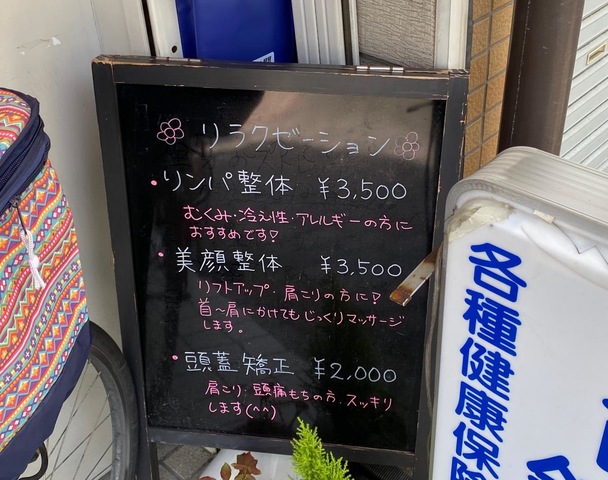 リラクゼーション
・リンパ整体 ¥3,500
むくみ・冷え性・アレルギーの方に
おすすめです!
・美顔整体 ¥3,500
リフトアップ、肩こりの方に!
首〜肩にかけてもじっくりマッサージ
します。
・頭蓋矯正 ¥2,000
肩こり、頭痛もちの方、スッキリ
します(^^)
各種健康保険